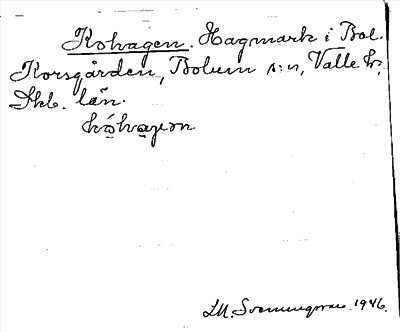 Kohagen. Hagmark i Bol.
Korsgården, Bolum s:n, Valle hr,
Skb. län.
kóhagen
1946.